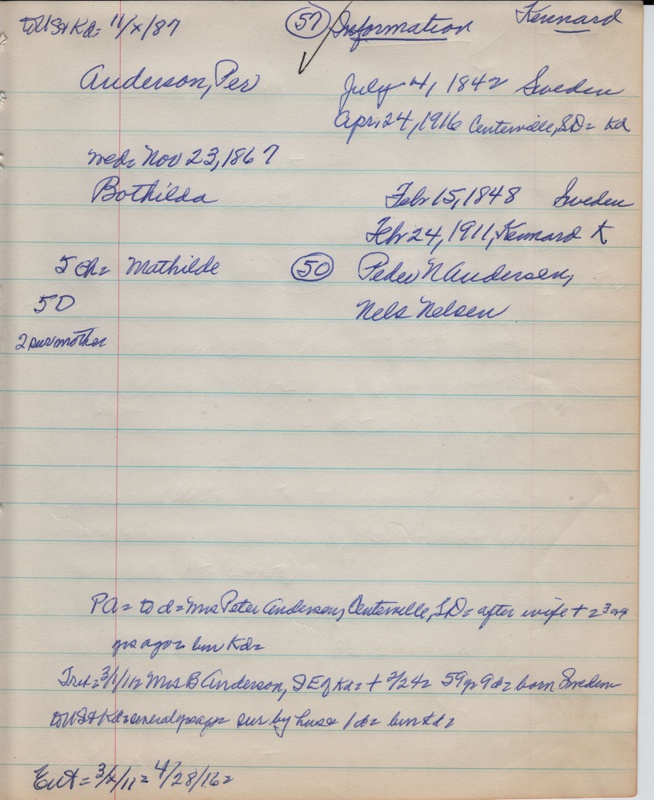 to US + Kd= 11/x/87 (57) Information Kennard
Anderson, Per July 4, 1842 Sweden
Apr. 24, 1916 Centerville, SD= Kd
wed= Nov 23, 1867
Bothilda Feb 15, 1848 Sweden
Feb 24, 1911, Kennard K
5 ch= Mathilde (50) Peder N Andersen,
5D Nels Nelsen
2 sur mother
PA= to d= Mrs Peter Andersen, Centerville, SD= after wife + 2 3
yrs ago= bur Kd=
3/1/11= Mrs B Anderson, SE of Kd= + 2/24= 59 yr 9 d= born Sweden
to US + Kd= several yrs ago= sur by hus= 1 d= bur Kd=
Ent= 3/2/11= 4/28/16=